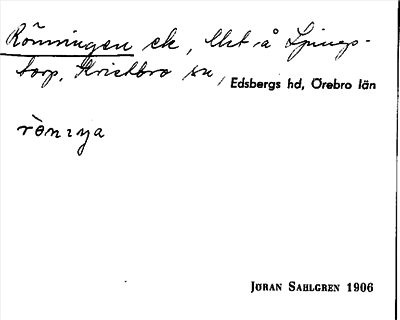 Rönningen ek, litet å Ljungs-
torp, Kvistbro sn, Edsbergs hd, Örebro län
rö̀nıŋa
JÖRAN SAHLGREN 1906